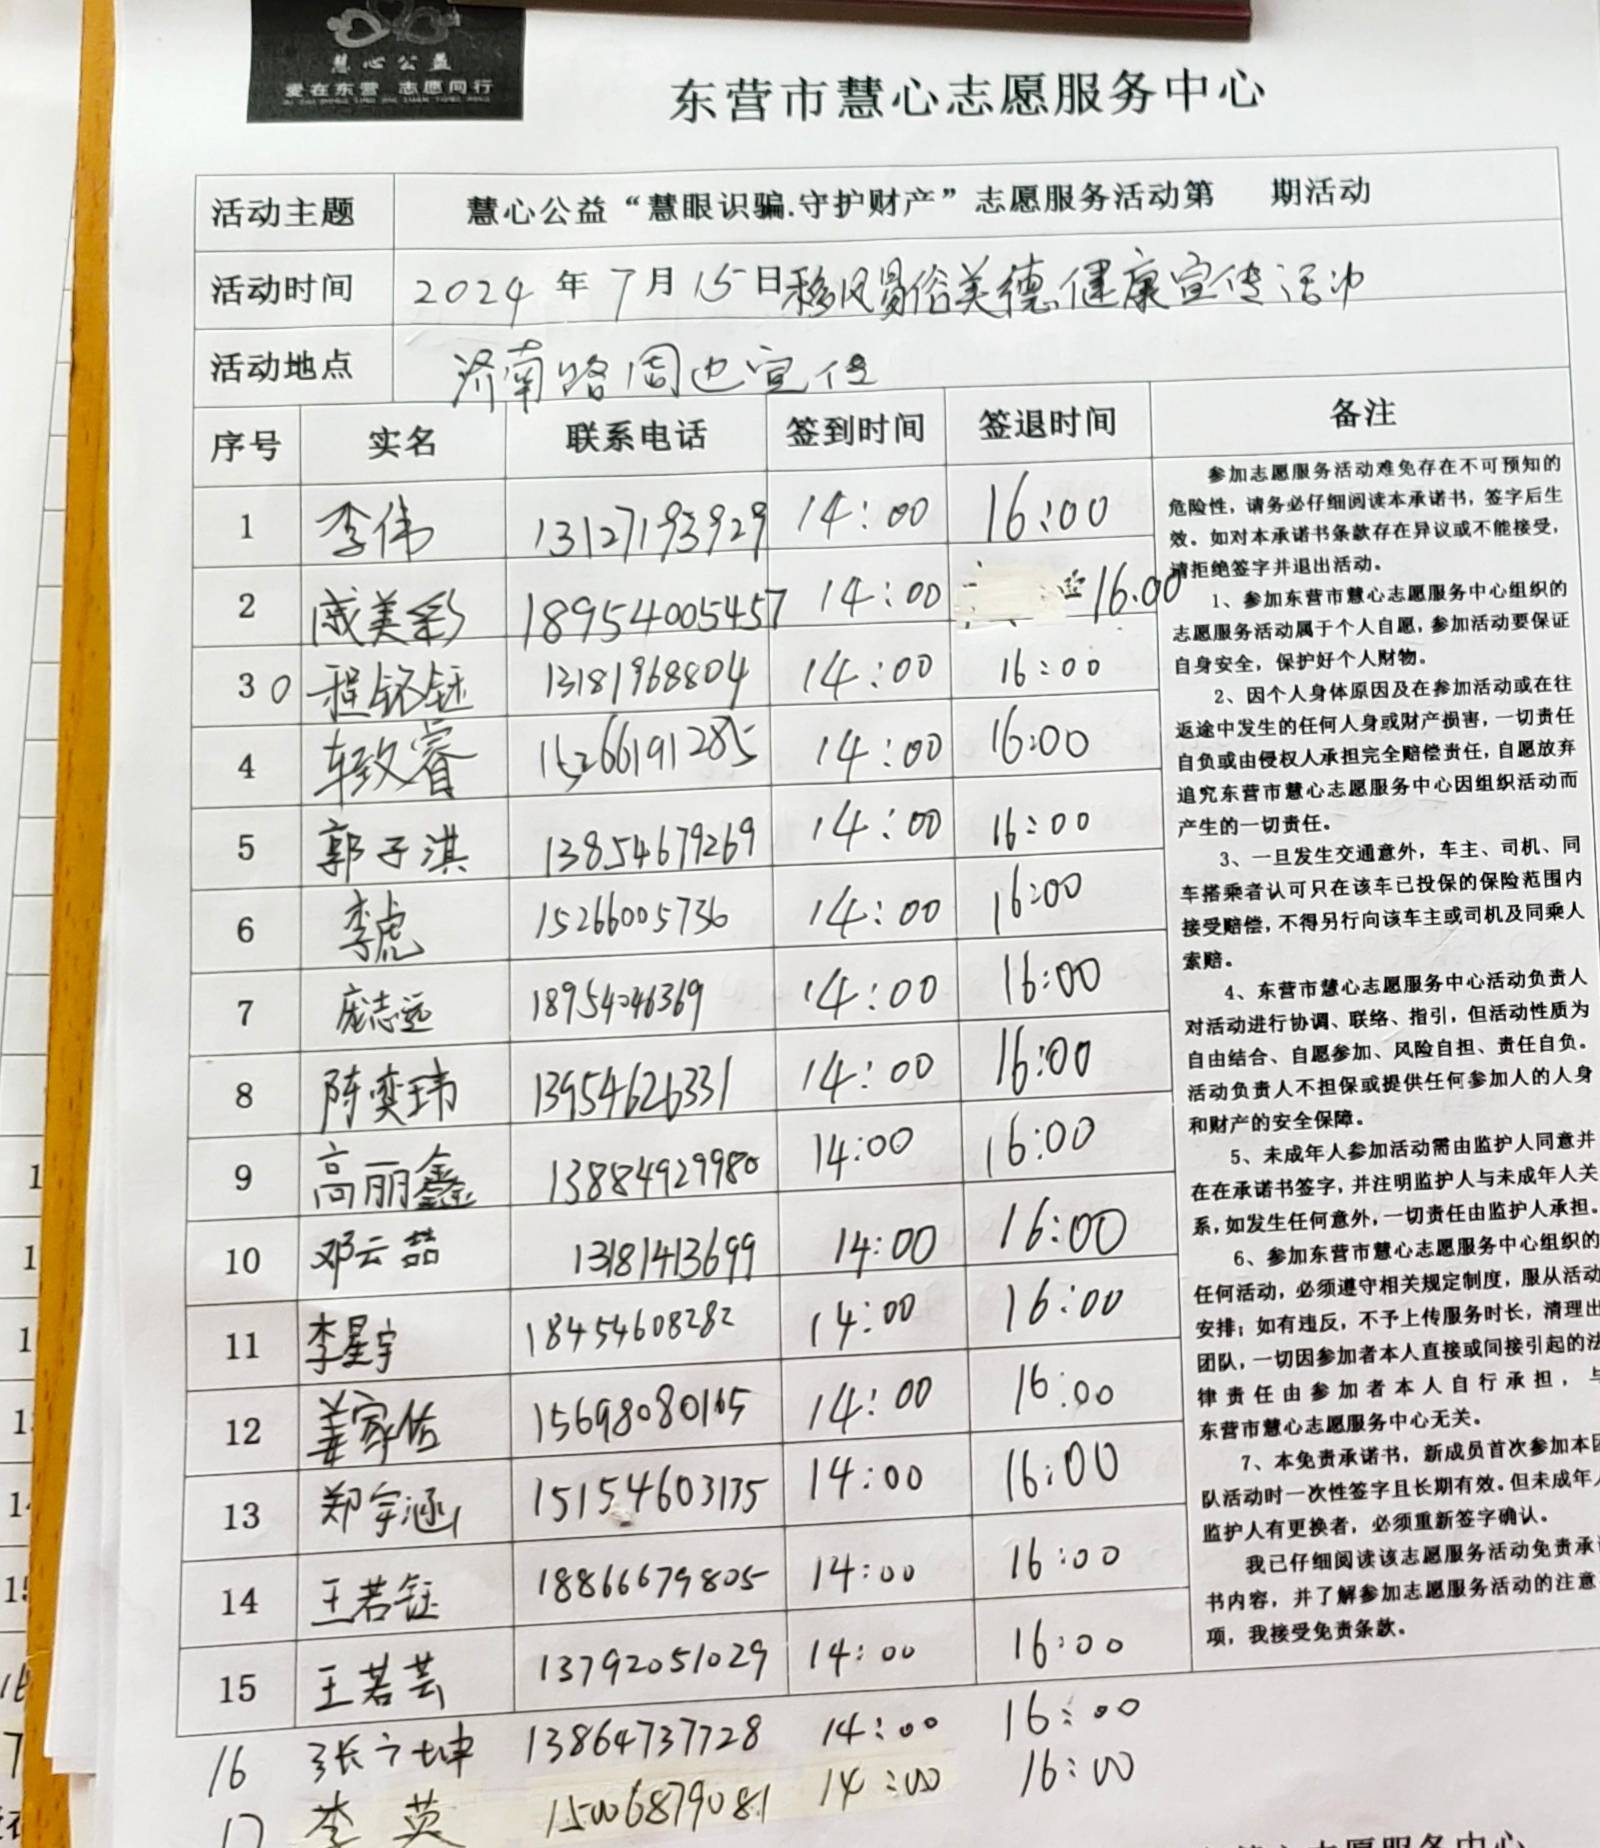 慧心公益
爱在东营 志愿同行
东营市慧心志愿服务中心
活动主题 慧心公益“慧眼识骗.守护财产”志愿服务活动第 期活动
活动时间 2024年7月15日移风易俗美德健康宣传活动
活动地点 济南路周边宣传
序号 实名 联系电话 签到时间 签退时间 备注
1 李伟 13127193929 14:00 16:00
2 戚美彩 18954005457 14:00 16.00
3 0 程铭钰 13181968804 14:00 16:00
4 车致睿 15266191285 14:00 16:00
5 郭子淇 13854679269 14:00 16:00
6 李虎 15266005736 14:00 16:00
7 庞志远 18954046369 14:00 16:00
8 陈奕玮 13954626331 14:00 16:00
9 高丽鑫 13884929980 14:00 16:00
10 邓云喆 13181413699 14:00 16:00
11 李星宇 18454608282 14:00 16:00
12 姜家佑 15698080165 14:00 16:00
13 郑宇涵 15154603135 14:00 16:00
14 王若钰 18866679805 14:00 16:00
15 王若芸 13792051029 14:00 16:00
16 张 坤 13864737728 14:00 16:00
17 李英 15006879081 14:00 16:00
参加志愿服务活动难免存在不可预知的
危险性，请务必仔细阅读本承诺书，签字后生
效。如对本承诺书条款存在异议或不能接受，
请拒绝签字并退出活动。
1、参加东营市慧心志愿服务中心组织的
志愿服务活动属于个人自愿，参加活动要保证
自身安全，保护好个人财物。
2、因个人身体原因及在参加活动或在往
返途中发生的任何人身或财产损害，一切责任
自负或由侵权人承担完全赔偿责任，自愿放弃
追究东营市慧心志愿服务中心因组织活动而
产生的一切责任。
3、一旦发生交通意外，车主、司机、同
车搭乘者认可只在该车已投保的保险范围内
接受赔偿，不得另行向该车主或司机及同乘人
索赔。
4、东营市慧心志愿服务中心活动负责人
对活动进行协调、联络、指引，但活动性质为
自由结合、自愿参加、风险自担、责任自负。
活动负责人不担保或提供任何参加人的人身
和财产的安全保障。
5、未成年人参加活动需由监护人同意并
在在承诺书签字，并注明监护人与未成年人关
系，如发生任何意外，一切责任由监护人承担。
6、参加东营市慧心志愿服务中心组织的
任何活动，必须遵守相关规定制度，服从活动
安排；如有违反，不予上传服务时长，清理出
团队，一切因参加者本人直接或间接引起的法
律责任由参加者本人自行承担，与
东营市慧心志愿服务中心无关。
7、本免责承诺书，新成员首次参加本团
队活动时一次性签字且长期有效。但未成年人
监护人有更换者，必须重新签字确认。
我已仔细阅读该志愿服务活动免责承诺
书内容，并了解参加志愿服务活动的注意
项，我接受免责条款。